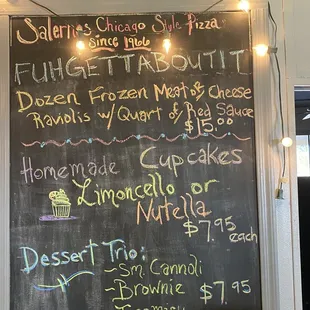 Salerni's Chicago Style Pizza
since 1966
FUHGETTABOUTIT
Dozen Frozen Meat or Cheese
Raviolis w/ Quart of Red Sauce
$15.00
Homemade Cupcakes
Limoncello or
Nutella
$7.95
each
Dessert Trio:
~Sm. Cannoli
~Brownie $7.95